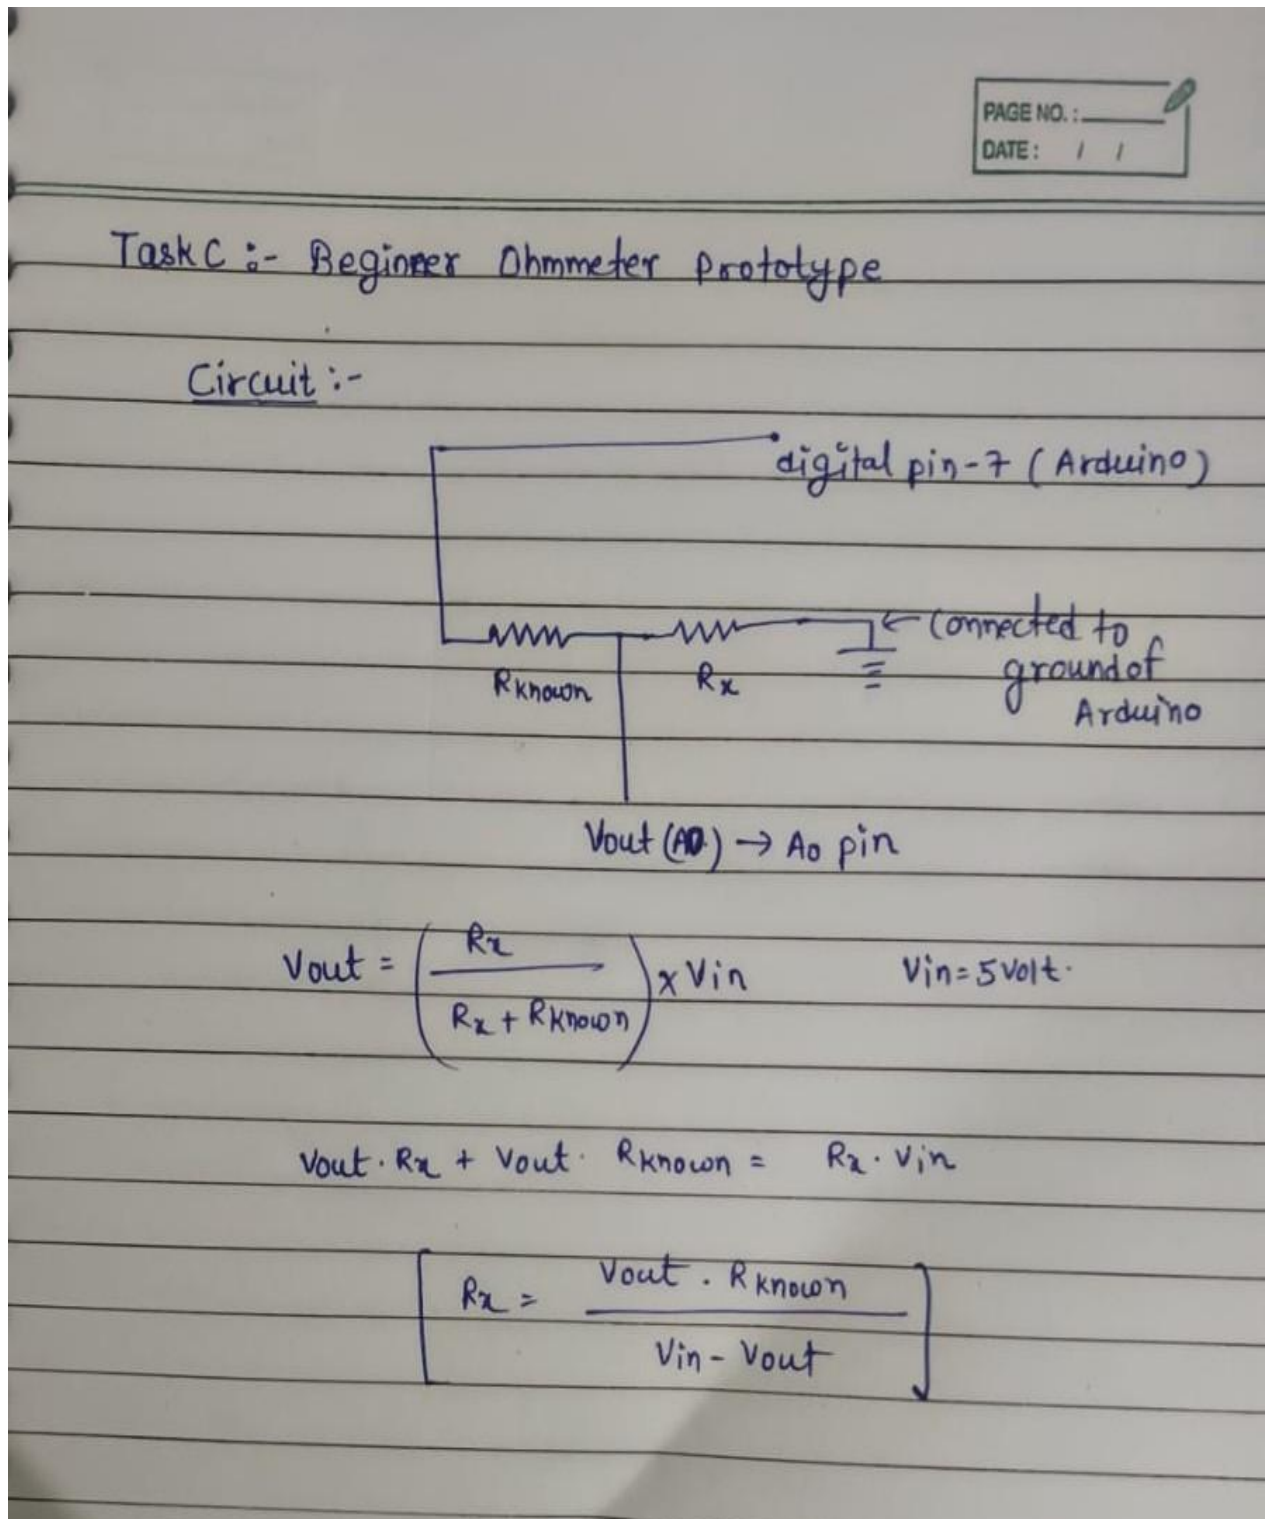 PAGE NO. :
DATE : / /
Task C :- Beginner Ohmmeter Prototype
Circuit :-
digital pin-7 (Arduino)
Rknown
Rx
← connected to
ground of
Arduino
Vout (A0) → A0 pin
Vout = ( Rx / Rx + Rknown ) x Vin Vin = 5 volt.
Vout . Rx + Vout . Rknown = Rx . Vin
[ Rx = Vout . Rknown / Vin - Vout ]